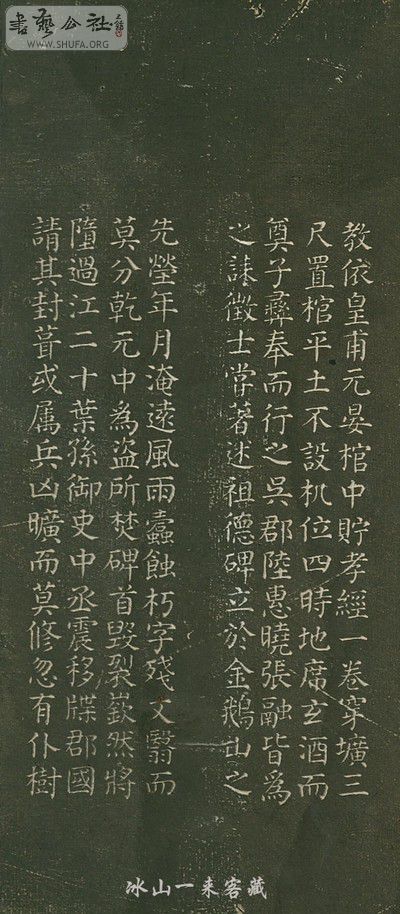 書藝公社
WWW.SHUFA.ORG
教依皇甫元晏棺中貯孝經一卷穿壙三
尺置棺平土不設机位四時地席玄酒而
奠子彝奉而行之吳郡陸惠曉張融皆為
之誄徵士嘗著述祖德碑立於金鵝山之
先塋年月淹遠風雨蠹蝕朽字殘文翳而
莫分乾元中為盜所焚碑首毀裂嶔然將
墮過江二十葉孫御史中丞震移牒郡國
請其封葺或属兵凶曠而莫修忽有仆樹
冰山一来客藏